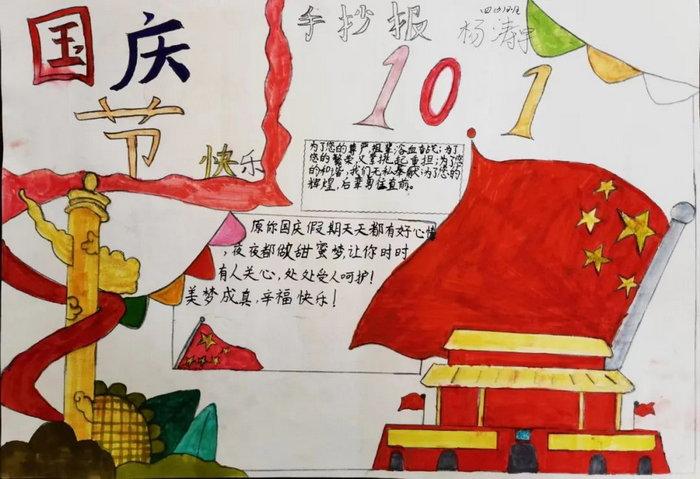 国庆
节
快乐
手抄报
杨涛宇
10 1
为了您的尊严祖辈浴血奋战:为了
您的繁荣父辈挑起重担:为了您
的和谐,我们无私奉献:为了您的
辉煌,后辈勇猛直前。
原你国庆假期天天都有好心情
,夜夜都做甜蜜梦,让你时时
有人关心,处处受人呵护!
美梦成真,幸福快乐!